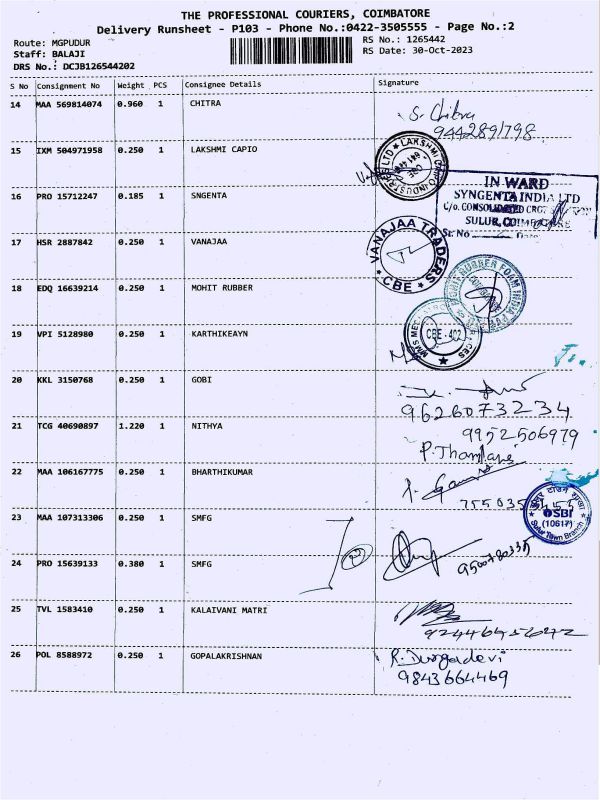 THE PROFESSIONAL COURIERS, COIMBATORE
Delivery Runsheet - P103 - Phone No.:0422-3505555 - Page No.:2
Route: MGPUDUR
RS No.: 1265442
Staff: BALAJI
RS Date: 30-Oct-2023
DRS No.: DCJB126544202
S No Consignment No Weight PCS Consignee Details Signature
14 MAA 569814074 0.960 1 CHITRA
S. Chitra
9442891798
15 IXM 504971958 0.250 1 LAKSHMI CAPIO
LAKSHMI
LTD
16 PRO 15712247 0.185 1 SNGENTA
IN WARD
SYNGENTA INDIA LTD
C/o. CONSOLIDATED
SULUR, COIMBATORE
Sr. No Date
17 HSR 2887842 0.250 1 VANAJAA
VANAJAA TRADERS
CBE
18 EDQ 16639214 0.250 1 MOHIT RUBBER
RUBBER FOAM INDIA
19 VPI 5128980 0.250 1 KARTHIKEAYN
CBE - 402
20 KKL 3150768 0.250 1 GOBI
9626073234
21 TCG 40690897 1.220 1 NITHYA
9952506979
22 MAA 106167775 0.250 1 BHARTHIKUMAR
23 MAA 107313306 0.250 1 SMFG
SBI
(10617)
Sulur Town Branch
24 PRO 15639133 0.380 1 SMFG
25 TVL 1583410 0.250 1 KALAIVANI MATRI
26 POL 8588972 0.250 1 GOPALAKRISHNAN
R. Durgadevi
9843664469